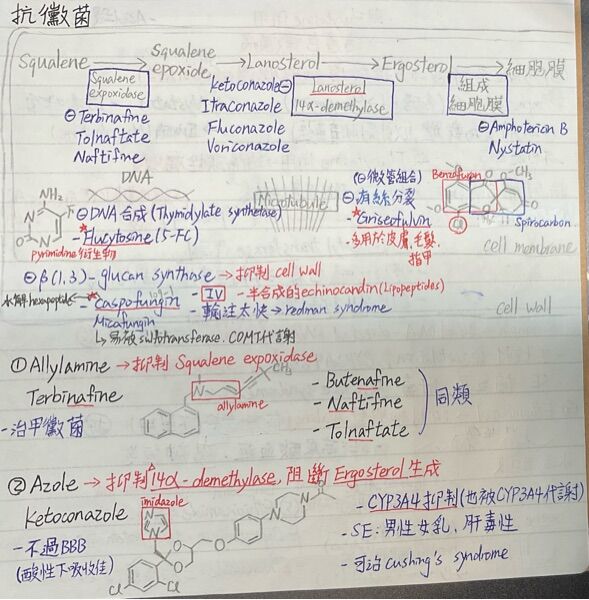 抗黴菌
Squalene → Squalene epoxide → Lanosterol → Ergosterol → 細胞膜
Squalene expoxidase
⊖ Terbinafine
Tolnaftate
Naftifine
Ketoconazole ⊖
Itraconazole
Fluconazole
Voriconazole
Lanosterol
14α-demethylase
組成
細胞膜
⊖ Amphotericin B
Nystatin
DNA
⊖ DNA合成(Thymidylate synthetase)
*Flucytosine (5-FC)
NH₂
F
N
O
N
pyrimidine衍生物
Microtubule
(⊖微管組合)
⊖有絲分裂
-*Griseofulvin
-多用於皮膚、毛髮、
指甲
Benzofuran
O-CH₃
Cl
Spirocarbon
cell membrane
⊖ β(1,3)-glucan synthase → 抑制 cell wall
水解hexapeptide
*Caspofungin
Micafungin
- IV - 半合成的echinocandin (Lipopeptides)
- 輸注太快 → redman syndrome
↳ 易被sulfotransferase. COMT代謝
cell wall
① Allylamine → 抑制 Squalene expoxidase
Terbinafine
- 治甲黴菌
N
CH₃
allylamine
- Butenafine
- Naftifine
- Tolnaftate
同類
② Azole → 抑制14α-demethylase, 阻斷Ergosterol生成
Ketoconazole
- 不過BBB
(酸性下吸收佳)
imidazole
N
N
O
O
O
N
N
Cl
Cl
- CYP3A4抑制(也被CYP3A4代謝)
- SE: 男性女乳、肝毒性
- 可治cushing's syndrome